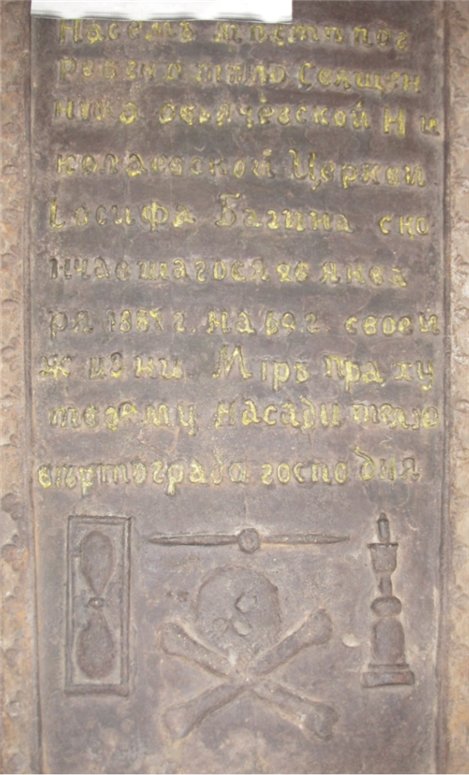 На семъ мѣстѣ пог
ребено тѣло Священ
ника Ни
колаевской Церкви
Іосифа Багина ско
нчавшагося 28 янва
ря г. на году своей
жизни Миръ праху
твоему насадителю
вертограда господня